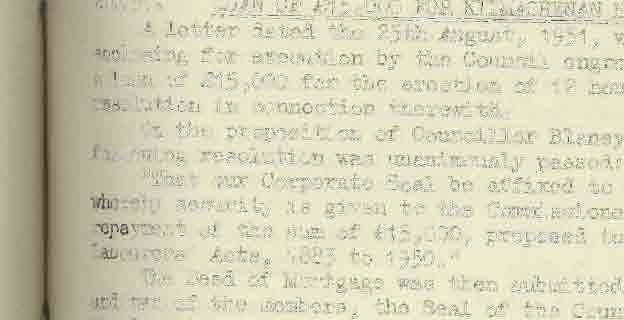 LOAN OF £15,000 FOR KILMACRENAN
A letter dated the 25th August, 1951,
enclosing for execution by the Council
a loan of £15,000 for the erection of 12
resolution in connection therewith.
On the proposition of Councillor Blaney
following resolution was unanimously passed:
"That our Corporate Seal be affixed to
whereby security is given to the Commissione
repayment of the sum of £15,000, proposed to
Labourers' Acts, 1883 to 1950."
The Deed of Mortgage was then submitted
and two of the members, the Seal of the Coun